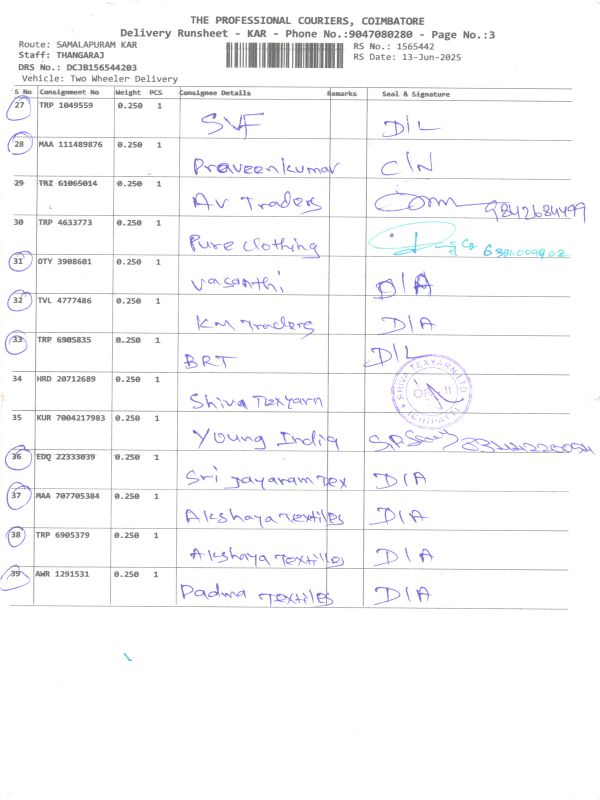 THE PROFESSIONAL COURIERS, COIMBATORE
Delivery Runsheet - KAR - Phone No.:9047080280 - Page No.:3
Route: SAMALAPURAM KAR RS No.: 1565442
Staff: THANGARAJ RS Date: 13-Jun-2025
DRS No.: DCJB156544203
Vehicle: Two Wheeler Delivery
S No Consignment No Weight PCS Consignee Details Remarks Seal & Signature
27 TRP 1049559 0.250 1 SVF D/L
28 MAA 111489876 0.250 1 Praveenkumar C/N
29 TRZ 61065014 0.250 1 AV Traders 9842684499
30 TRP 4633773 0.250 1 Pure clothing
31 OTY 3908601 0.250 1 Vasanthi D/A
32 TVL 4777486 0.250 1 KM Traders D/A
33 TRP 6905835 0.250 1 BRT D/L
34 HRD 20712689 0.250 1 Shiva Texyarn SHIVA TEXYARN LTD
35 KUR 7004217983 0.250 1 Young India
36 EDQ 22333039 0.250 1 Sri Jayaram Tex D/A
37 MAA 707705384 0.250 1 Akshaya Textiles D/A
38 TRP 6905379 0.250 1 Akshaya Textiles D/A
39 AWR 1291531 0.250 1 Padma Textiles D/A